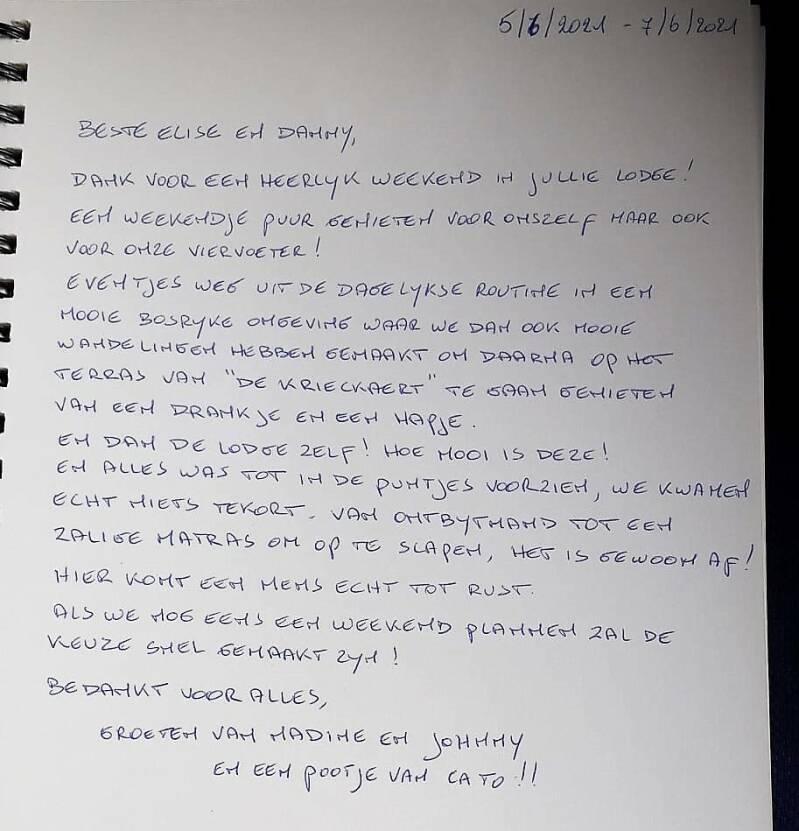 5/6/2021 - 7/6/2021
BESTE ELISE EN DANNY,
DANK VOOR EEN HEERLYK WEEKEND IN JULLIE LODGE!
EEN WEEKENDJE PUUR GENIETEN VOOR ONSZELF MAAR OOK
VOOR ONZE VIERVOETER!
EVENTJES WEG UIT DE DAGELYKSE ROUTINE IN EEN
MOOIE BOSRYKE OMGEVING WAAR WE DAN OOK MOOIE
WANDELINGEN HEBBEN GEMAAKT OM DAARNA OP HET
TERRAS VAN "DE KRIECKAERT" TE GAAN GENIETEN
VAN EEN DRANKJE EN EEN HAPJE.
EN DAN DE LODGE ZELF! HOE MOOI IS DEZE!
EN ALLES WAS TOT IN DE PUNTJES VOORZIEN, WE KWAMEN
ECHT NIETS TEKORT. VAN ONTBYTMAND TOT EEN
ZALIGE MATRAS OM OP TE SLAPEN, HET IS GEWOON AF!
HIER KOMT EEN MENS ECHT TOT RUST.
ALS WE NOG EENS EEN WEEKEND PLANNEN ZAL DE
KEUZE SNEL GEMAAKT ZYN!
BEDANKT VOOR ALLES,
GROETEN VAN NADINE EN JOHNNY
EN EEN POOTJE VAN CATO!!